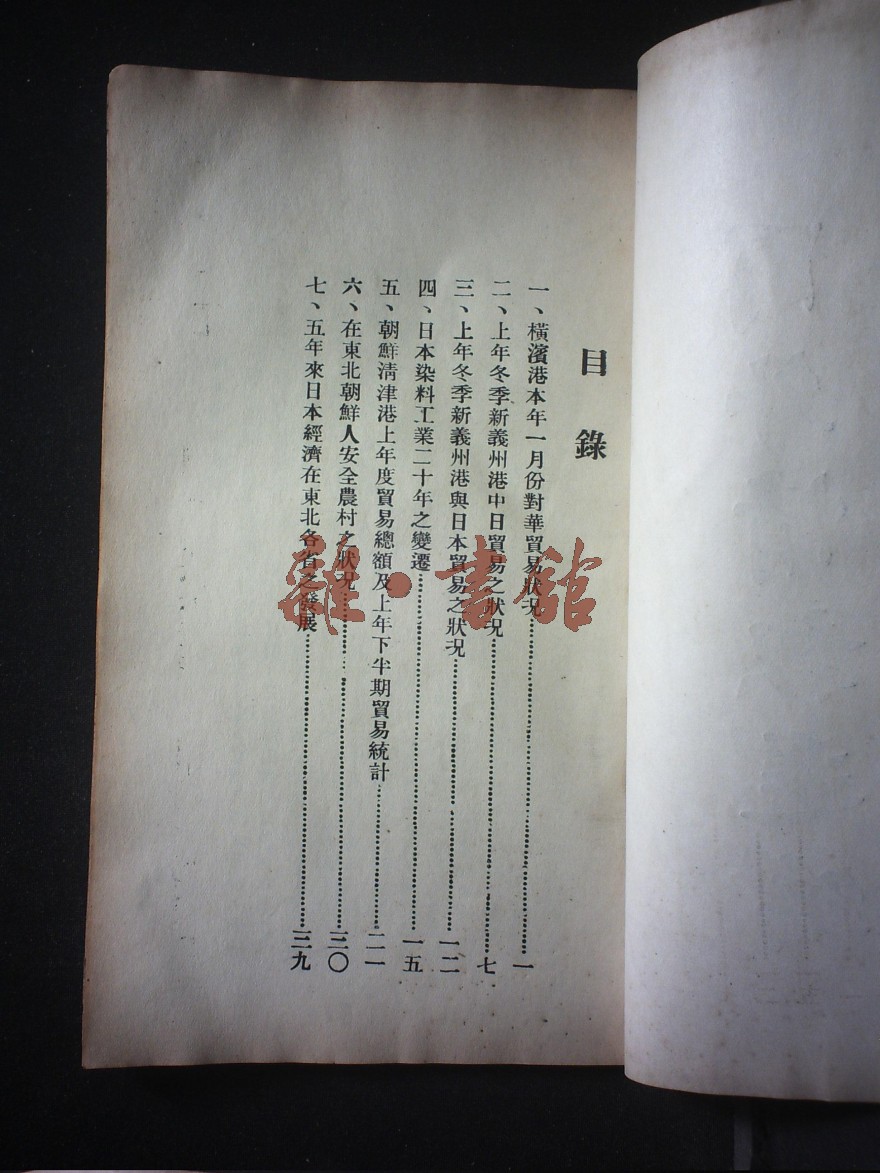 目錄
一、橫濱港本年一月份對華貿易狀况……一
二、上年冬季新義州港中日貿易之狀况……七
三、上年冬季新義州港與日本貿易之狀况……一二
四、日本染料工業二十年之變遷……一五
五、朝鮮淸津港上年度貿易總額及上年下半期貿易統計……二一
六、在東北朝鮮人安全農村之狀况……三〇
七、五年來日本經濟在東北各省之發展……三九
雜·書館